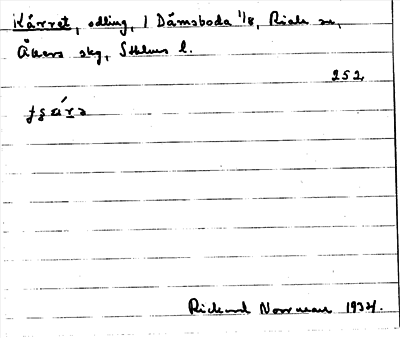 Kärret, odling, / Dämsboda 1/8, Riala sn,
Åkers skg, Sthlms l.
252
Rickard Norrman 1934.